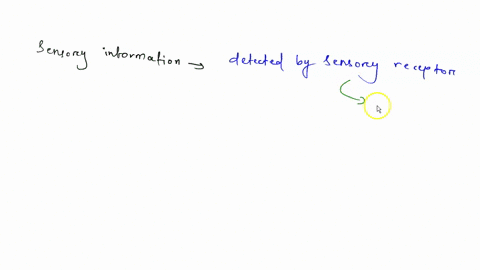 Sensory information → detected by sensory receptor